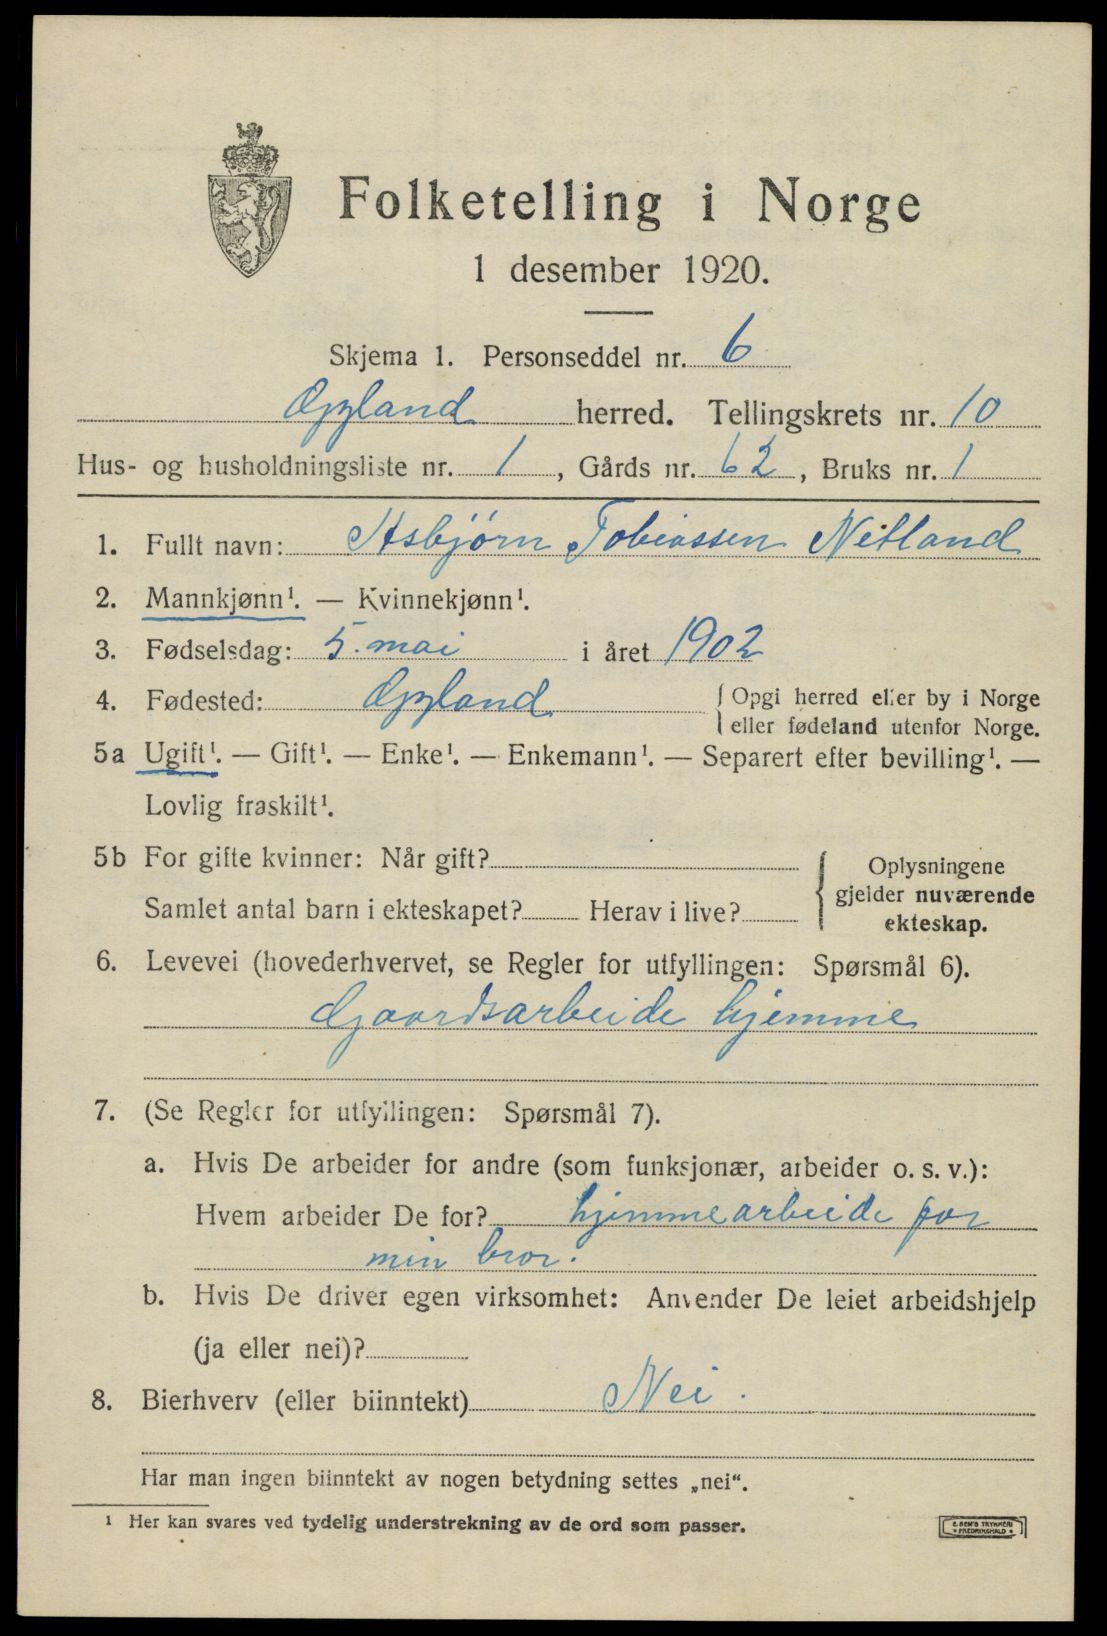 Folketelling i Norge
1 desember 1920.
Skjema 1. Personseddel nr. 6
Gyland herred. Tellingskrets nr. 10
Hus- og husholdningsliste nr. 1, Gårds nr. 62, Bruks nr. 1
1. Fullt navn: Asbjørn Tobiassen Netland
2. Mannkjønn¹. — Kvinnekjønn¹.
3. Fødselsdag: 5. mai i året 1902
4. Fødested: Gyland { Opgi herred eller by i Norge
eller fødeland utenfor Norge.
5a Ugift¹. — Gift¹. — Enke¹. — Enkemann¹. — Separert efter bevilling¹. —
Lovlig fraskilt¹.
5b For gifte kvinner: Når gift?
Samlet antal barn i ekteskapet? Herav i live?
Oplysningene
gjelder nuværende
ekteskap.
6. Levevei (hovederhvervet, se Regler for utfyllingen: Spørsmål 6).
Gaardsarbeide hjemme
7. (Se Regler for utfyllingen: Spørsmål 7).
a. Hvis De arbeider for andre (som funksjonær, arbeider o. s. v.):
Hvem arbeider De for? hjemmearbeide for
min bror.
b. Hvis De driver egen virksomhet: Anvender De leiet arbeidshjelp
(ja eller nei)?
8. Bierhverv (eller biinntekt) Nei.
Har man ingen biinntekt av nogen betydning settes „nei“.
¹ Her kan svares ved tydelig understrekning av de ord som passer.
E. SEM'S TRYKKERI
FREDRIKSHALD